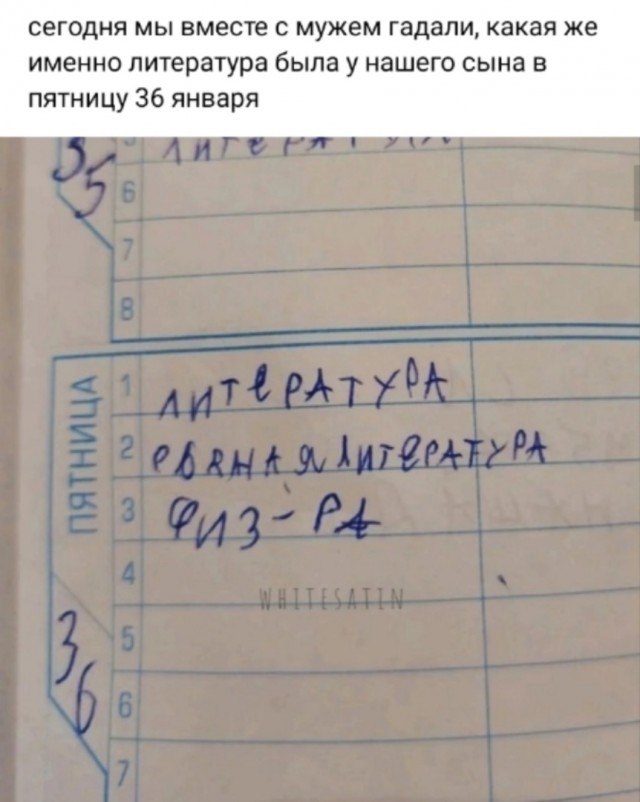 сегодня мы вместе с мужем гадали, какая же
именно литература была у нашего сына в
пятницу 36 января
35
ЛИТЕРАТУРА
6
7
8
ПЯТНИЦА
1 ЛИТЕРАТУРА
2 ЛИТЕРАТУРА
3 ФИЗ-РА
4
WHITESATIN
5
36
6
7